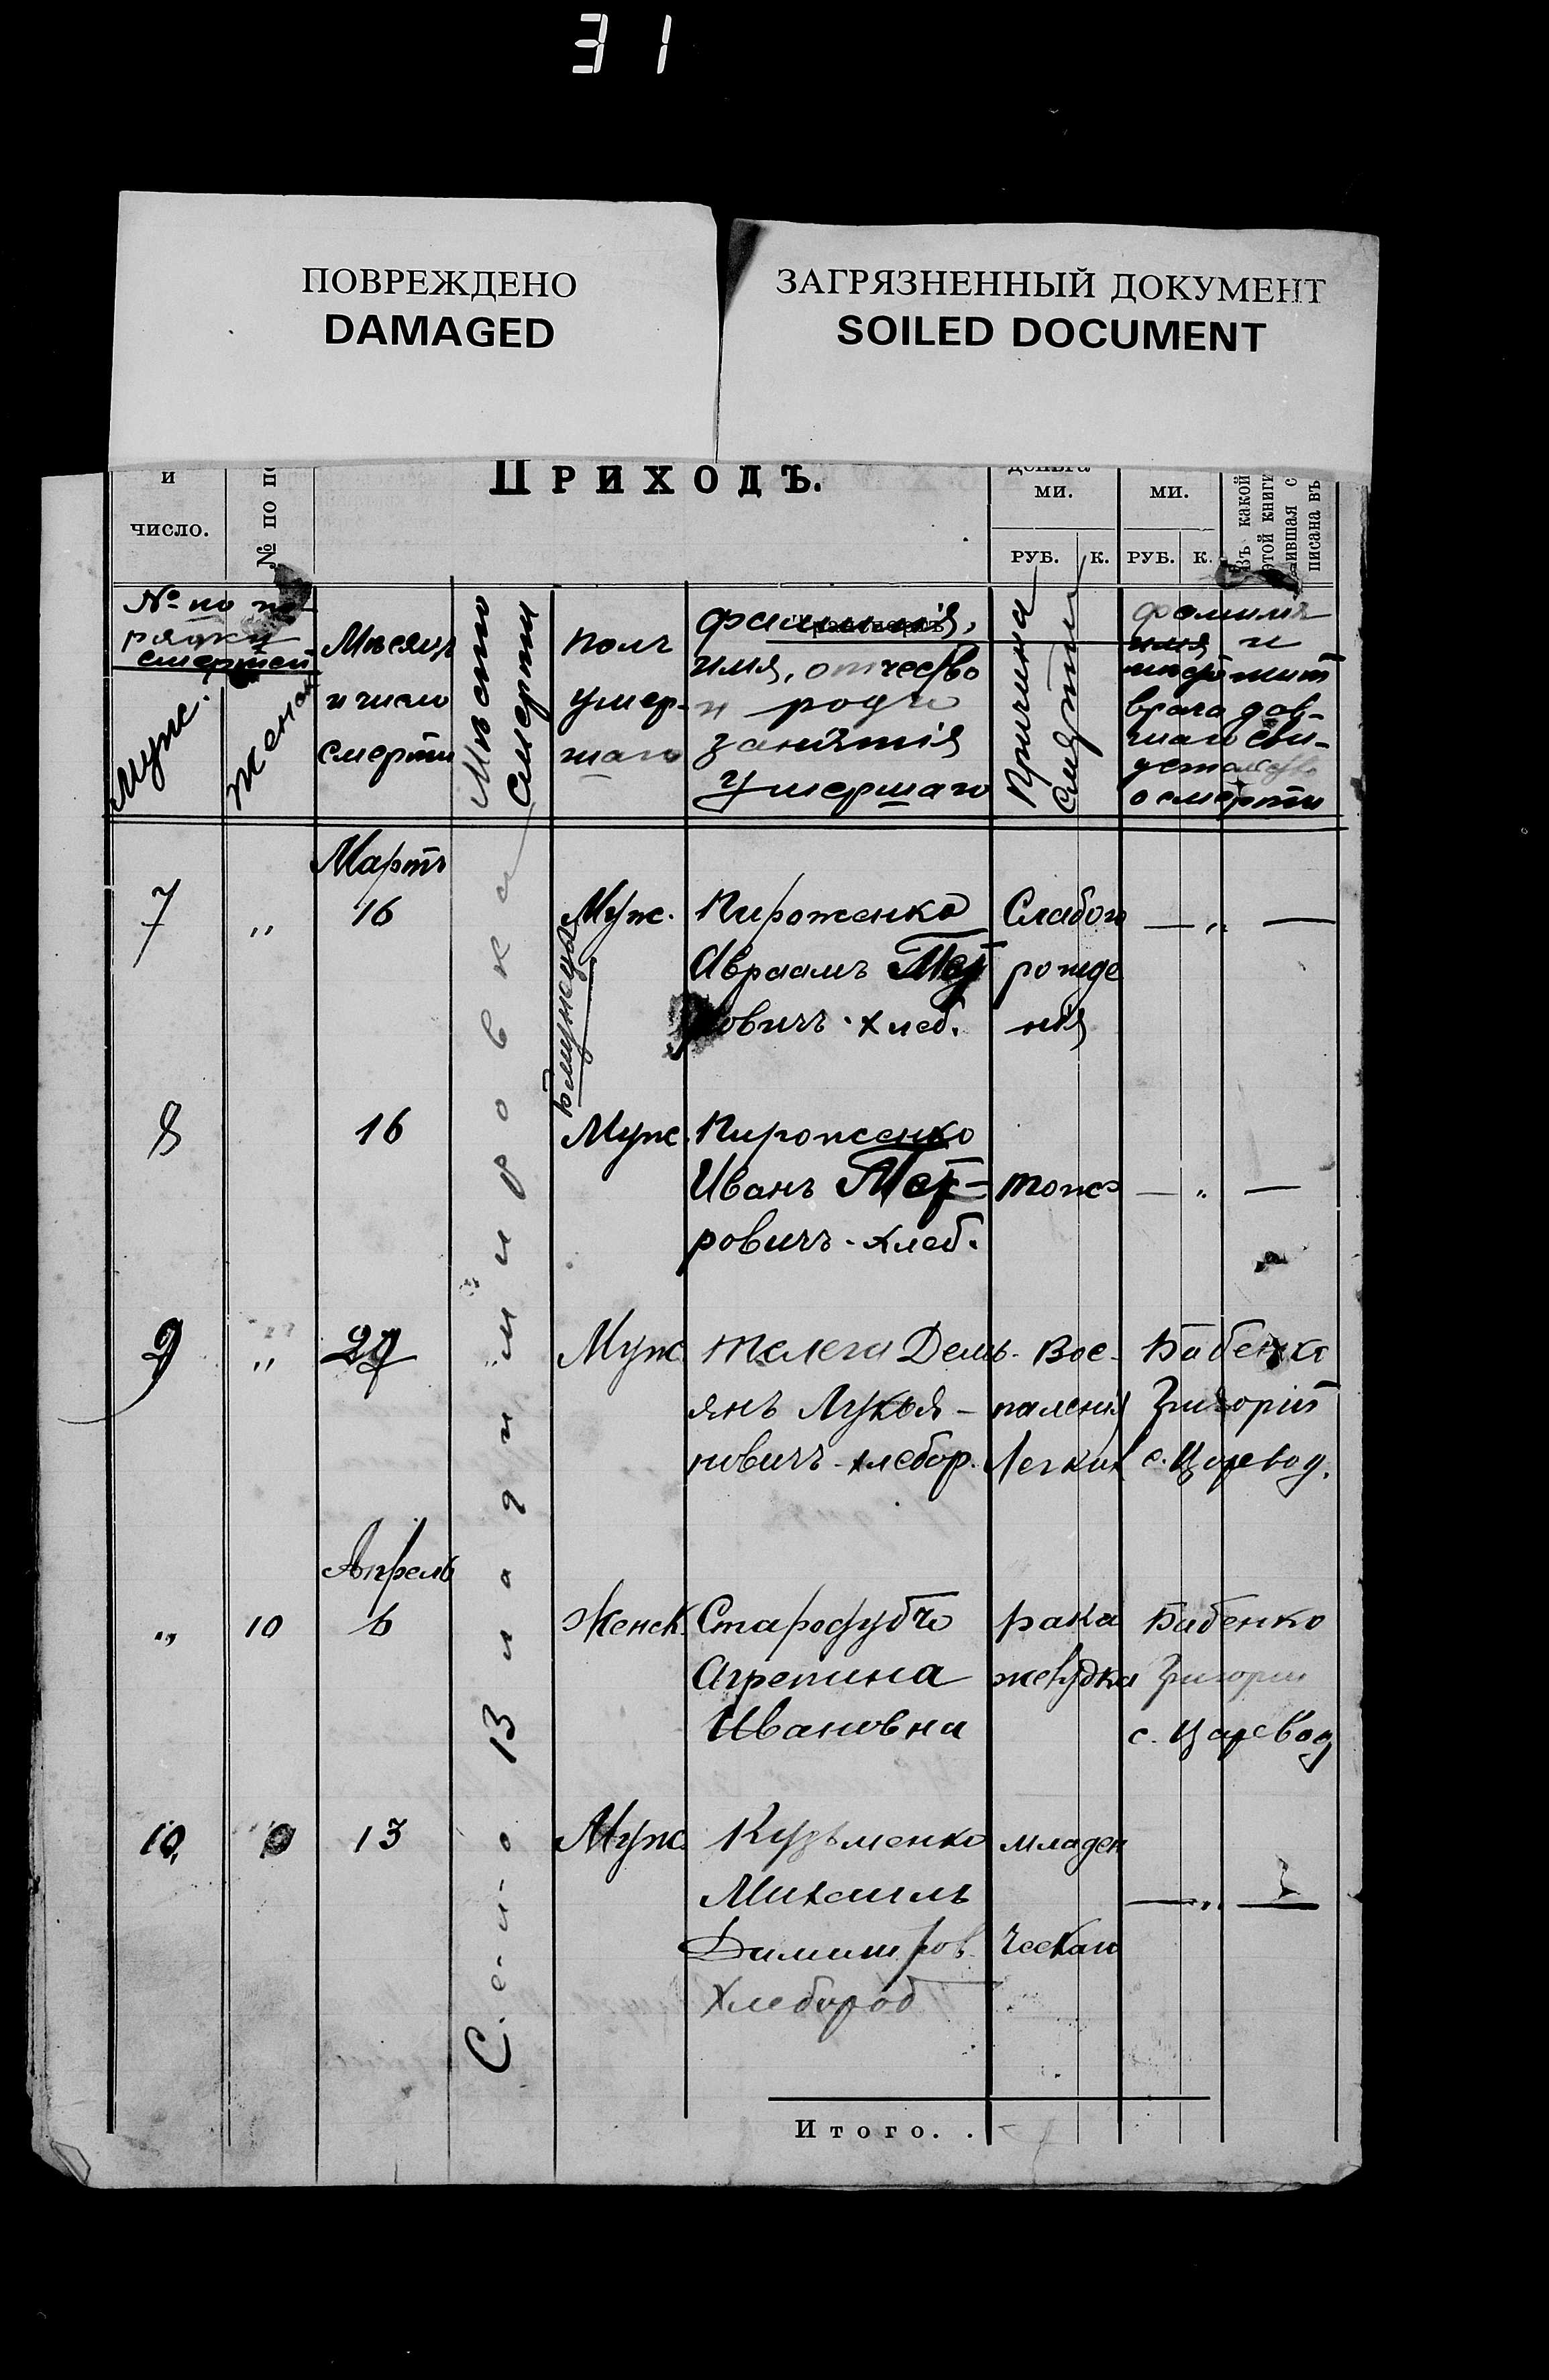 31
ПОВРЕЖДЕНО
DAMAGED
ЗАГРЯЗНЕННЫЙ ДОКУМЕНТ
SOILED DOCUMENT
и
число.
№ по
Приходъ.
ми.
руб. к.
ми.
руб. к.
Въ какой
этой книги
писана въ
№ по по-
рядку
смертей
Муж.
Женск
Месяцъ
и число
смерти
Место
смерти
полъ
умер-
шаго
фамилия,
имя, отчество
и родъ
занятія
умершаго
Причина
смерти
фамилия
имя и
врача дав-
шаго сви-
о смерти
Село Владиміровка
Мартъ
7
„
16
Муж.
Близнецы
Пироженко
Авраамъ Пет
ровичъ. хлеб.
Слабого
рожде
нія
— „ —
8
16
Муж.
Пироженко
Иванъ Пет-
ровичъ. хлеб.
тоже
— „ —
9
„
29
Муж.
Телега Демь-
янъ Лукья-
новичъ хлебор.
Вос-
паленія
Легких
Бабенко
Григорій
с. Царевод.
Апрель
„
10
6
Женск.
Стародубче
Агрепина
Ивановна
рака
желудка
Бабенко
Григорій
с. Царевод
10
13
Муж.
Кузьменко
Михаилъ
Димитров
Хлебороб
младен
ческаго
— „ —
Итого. .